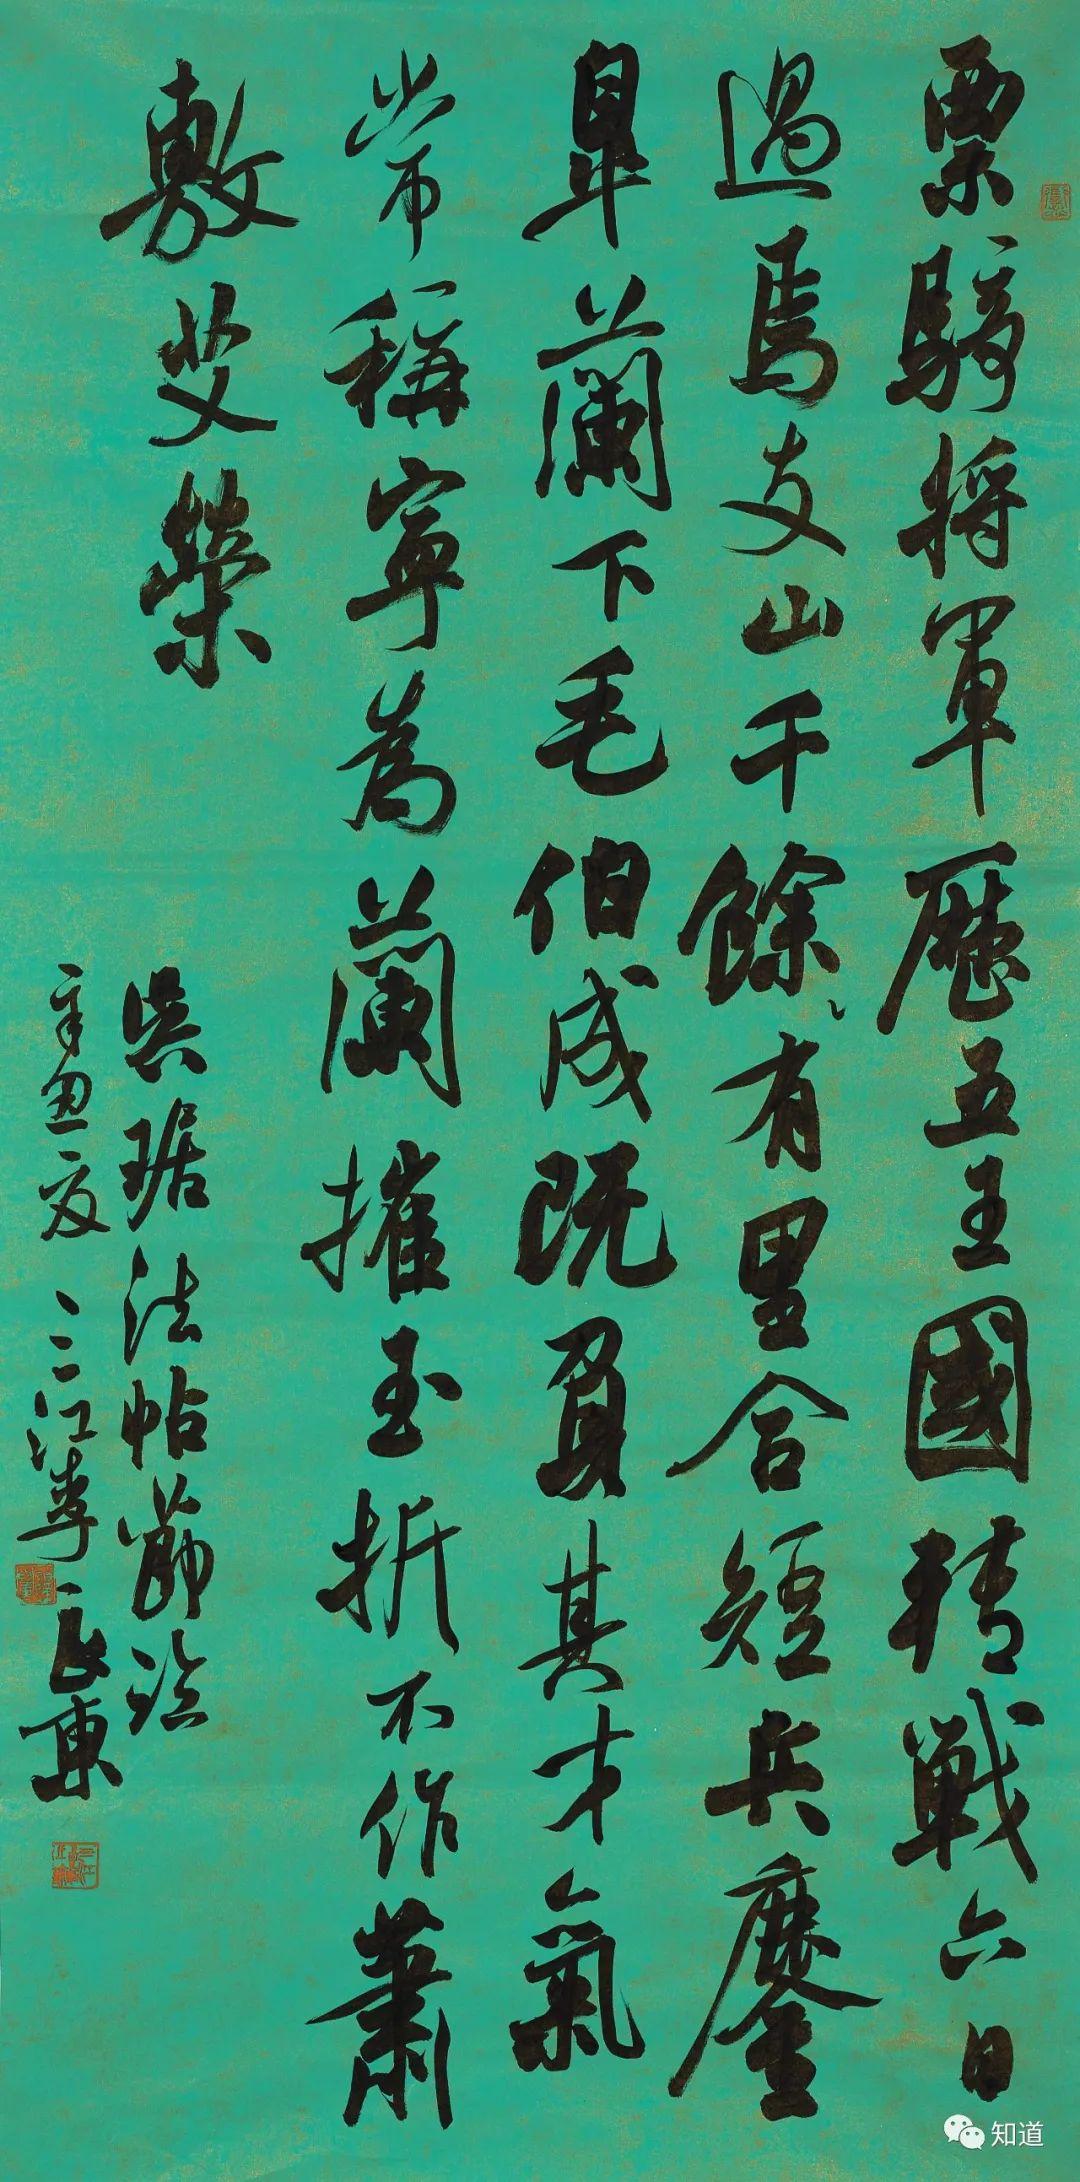 票騎將軍歷五王國轉戰六日
過焉支山千餘有里合短兵鏖
皋蘭下毛伯成既負其才氣
常稱寧為蘭摧玉折不作蕭
敷艾榮
吳琚法帖節臨
辛丑夏三江李長東
知道